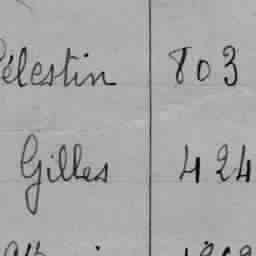 Célestin 803
Gilles 424